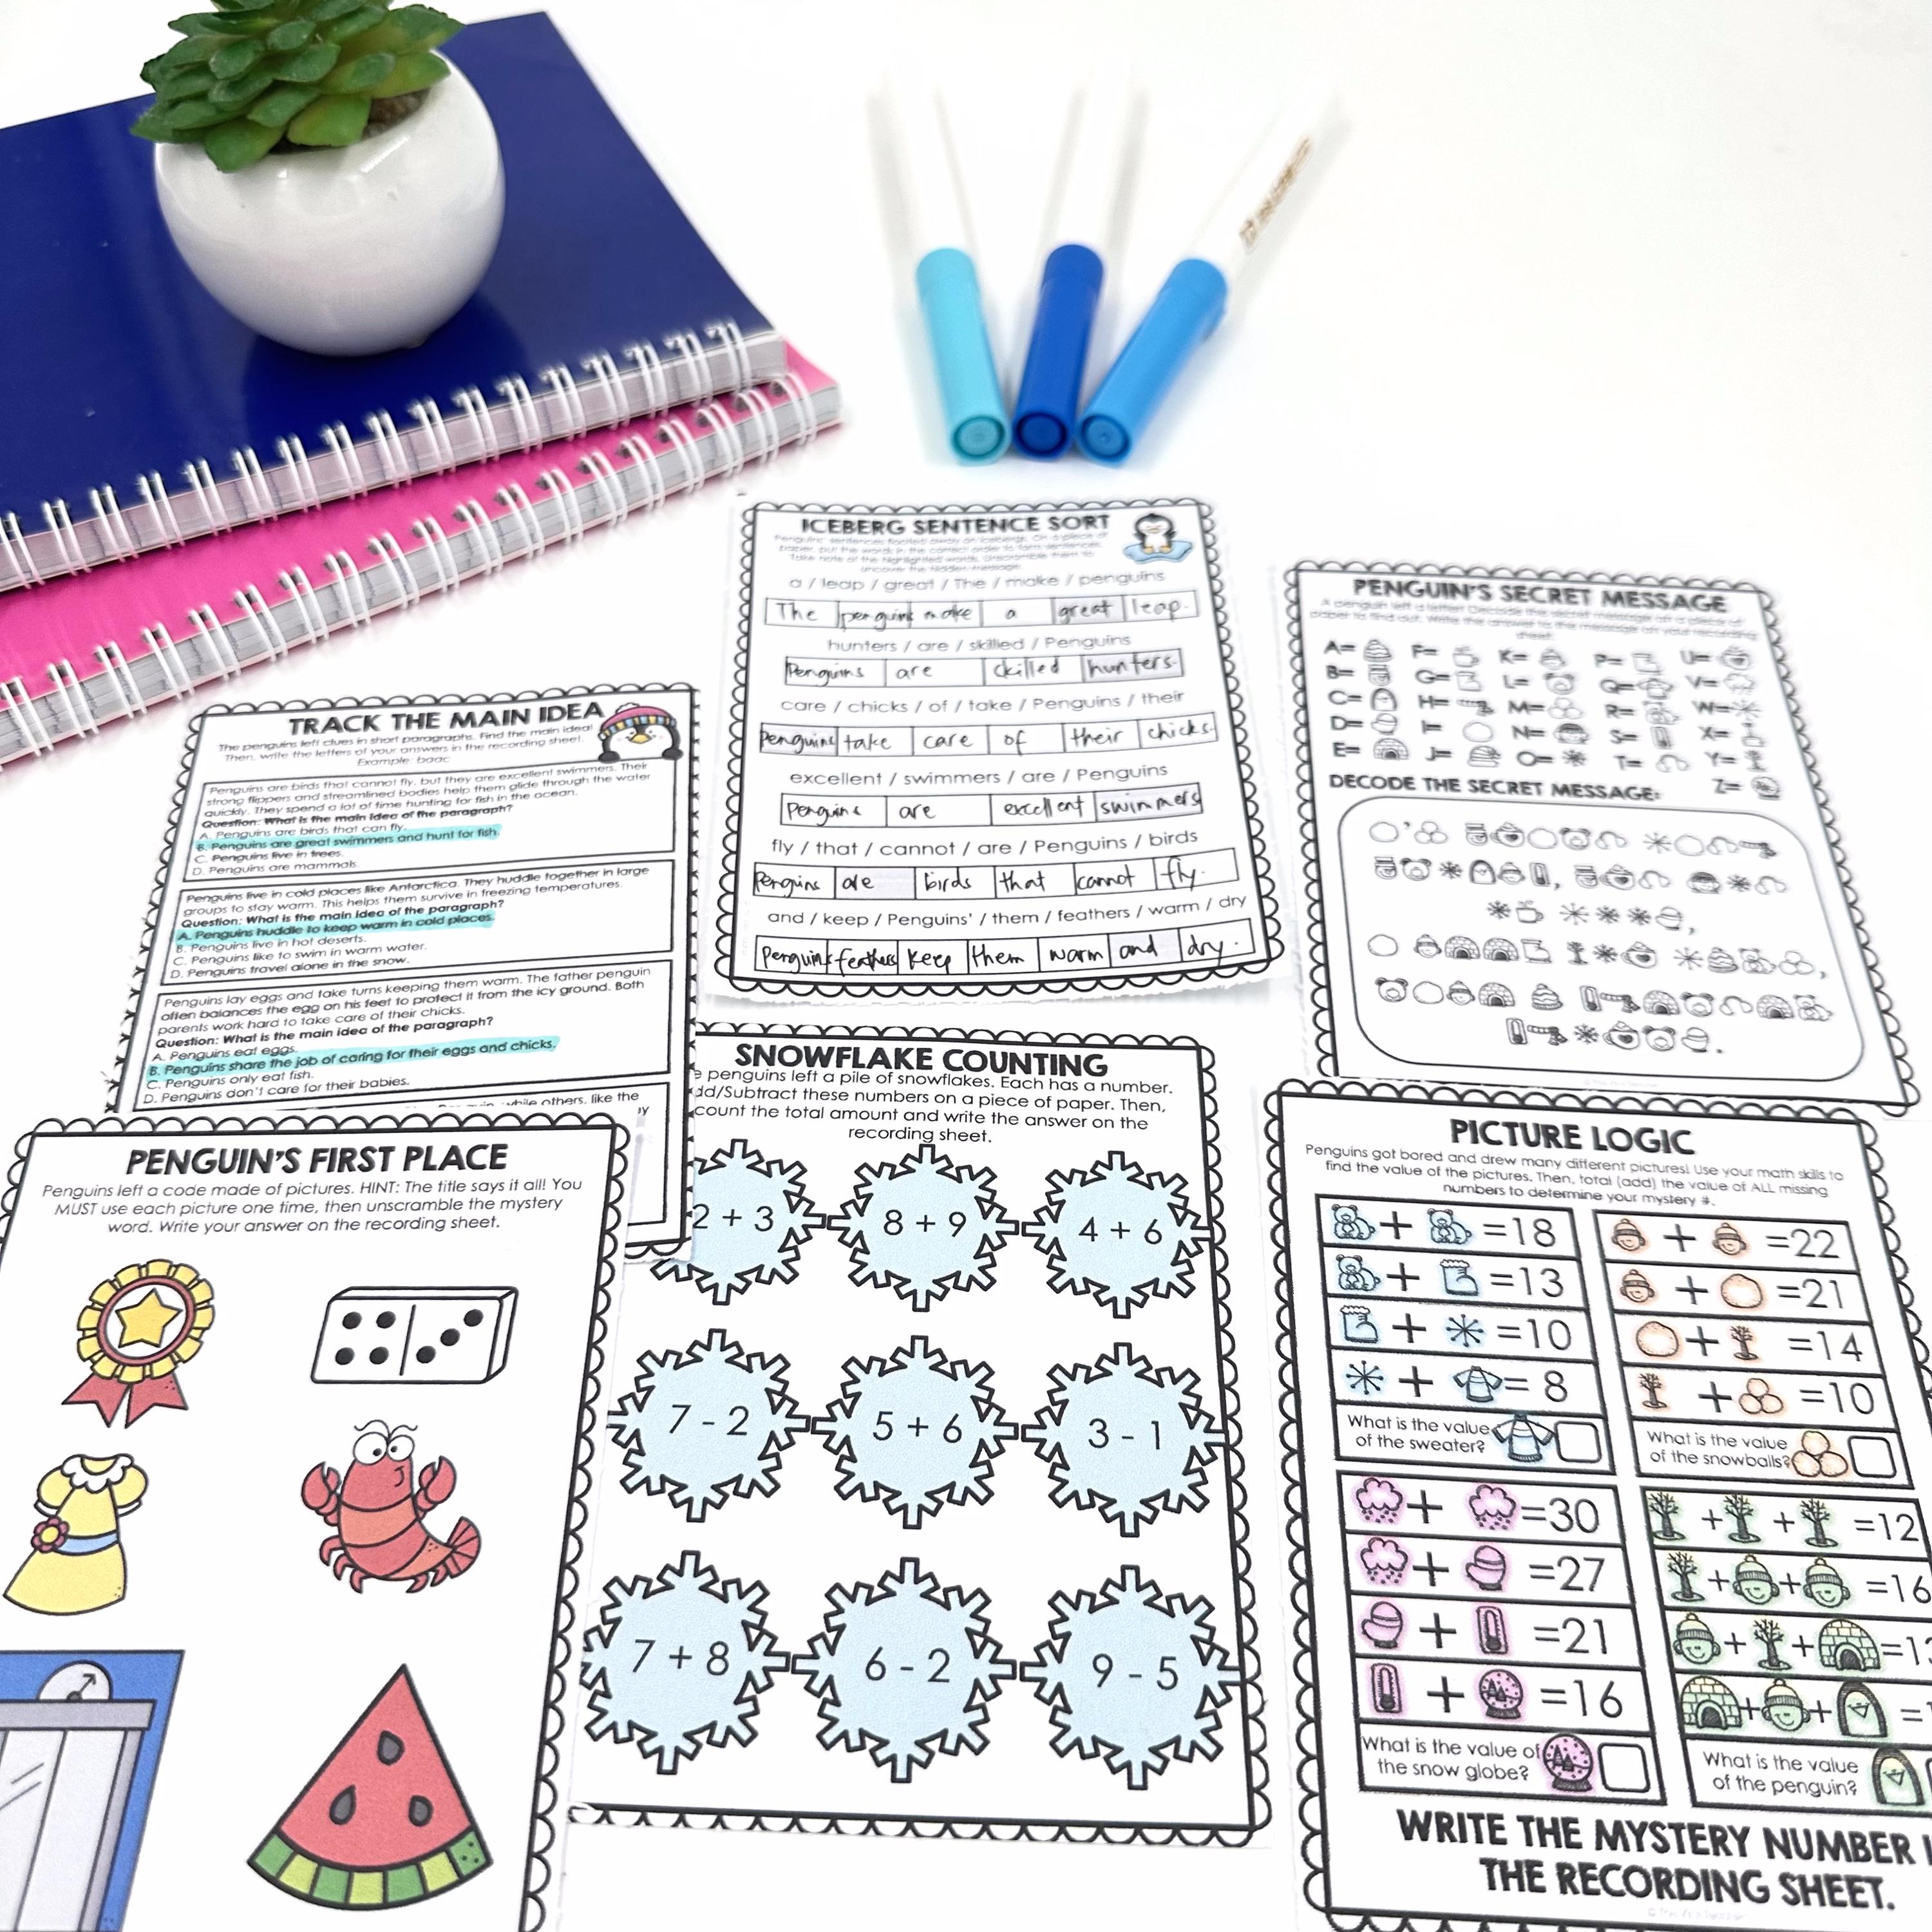 ICEBERG SENTENCE SORT
Penguins' sentences floated away on icebergs. On a piece of
paper, put the words in the correct order to form sentences.
Take note of the highlighted words. Unscramble them to
uncover the hidden message.
a / leap / great / The / make / penguins
The penguins make a great leap.
hunters / are / skilled / Penguins
Penguins are skilled hunters.
care / chicks / of / take / Penguins / their
Penguins take care of their chicks.
excellent / swimmers / are / Penguins
Penguins are excellent swimmers
fly / that / cannot / are / Penguins / birds
Pengins are birds that cannot fly.
and / keep / Penguins' / them / feathers / warm / dry
Penguins feathers keep them warm and dry.
PENGUIN'S SECRET MESSAGE
A penguin left a letter! Decode the secret message on a piece of
paper to find out. Write the answer to the message on your recording
sheet.
A= F= K= P= U=
B= G= L= Q= V=
C= H= M= R= W=
D= I= N= S= X=
E= J= O= T= Y=
Z=
DECODE THE SECRET MESSAGE:
TRACK THE MAIN IDEA
The penguins left clues in short paragraphs. Find the main idea!
Then, write the letters of your answers in the recording sheet.
Example: baac
Penguins are birds that cannot fly, but they are excellent swimmers. Their
strong flippers and streamlined bodies help them glide through the water
quickly. They spend a lot of time hunting for fish in the ocean.
Question: What is the main idea of the paragraph?
A. Penguins are birds that can fly.
B. Penguins are great swimmers and hunt for fish.
C. Penguins live in trees.
D. Penguins are mammals.
Penguins live in cold places like Antarctica. They huddle together in large
groups to stay warm. This helps them survive in freezing temperatures.
Question: What is the main idea of the paragraph?
A. Penguins huddle to keep warm in cold places.
B. Penguins live in hot deserts.
C. Penguins like to swim in warm water.
D. Penguins travel alone in the snow.
Penguins lay eggs and take turns keeping them warm. The father penguin
often balances the egg on his feet to protect it from the icy ground. Both
parents work hard to take care of their chicks.
Question: What is the main idea of the paragraph?
A. Penguins eat eggs.
B. Penguins share the job of caring for their eggs and chicks.
C. Penguins only eat fish.
D. Penguins don't care for their babies.
while others, like the
PENGUIN'S FIRST PLACE
Penguins left a code made of pictures. HINT: The title says it all! You
MUST use each picture one time, then unscramble the mystery
word. Write your answer on the recording sheet.
SNOWFLAKE COUNTING
penguins left a pile of snowflakes. Each has a number.
dd/Subtract these numbers on a piece of paper. Then,
count the total amount and write the answer on the
recording sheet.
2 + 3 8 + 9 4 + 6
7 - 2 5 + 6 3 - 1
7 + 8 6 - 2 9 - 5
PICTURE LOGIC
Penguins got bored and drew many different pictures! Use your math skills to
find the value of the pictures. Then, total (add) the value of ALL missing
numbers to determine your mystery #.
+ =18
+ =13
+ =10
+ = 8
What is the value
of the sweater?
+ =22
+ =21
+ =14
+ =10
What is the value
of the snowballs?
+ =30
+ =27
+ =21
+ =16
What is the value of
the snow globe?
+ + =12
+ + =16
+ + =1
+ + =
What is the value
of the penguin?
WRITE THE MYSTERY NUMBER
THE RECORDING SHEET.